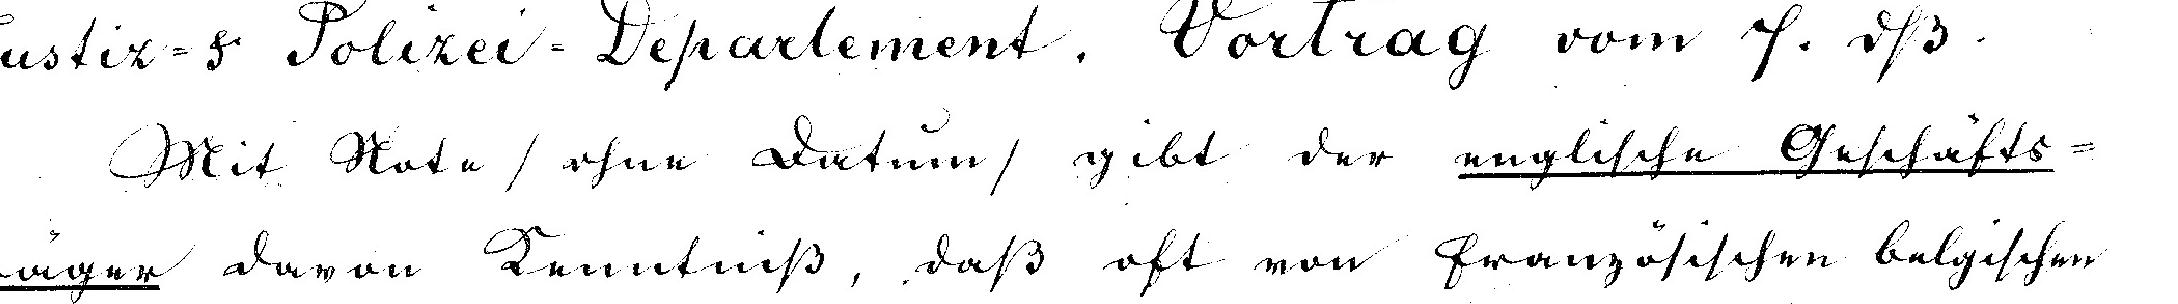 ustiz-& Polizei-Departement. Vortrag vom 7. dß.
Mit Note / ohne Datum / gibt der englische Geschäfts-
räger davon Kenntniß, daß oft von französischen belgischen